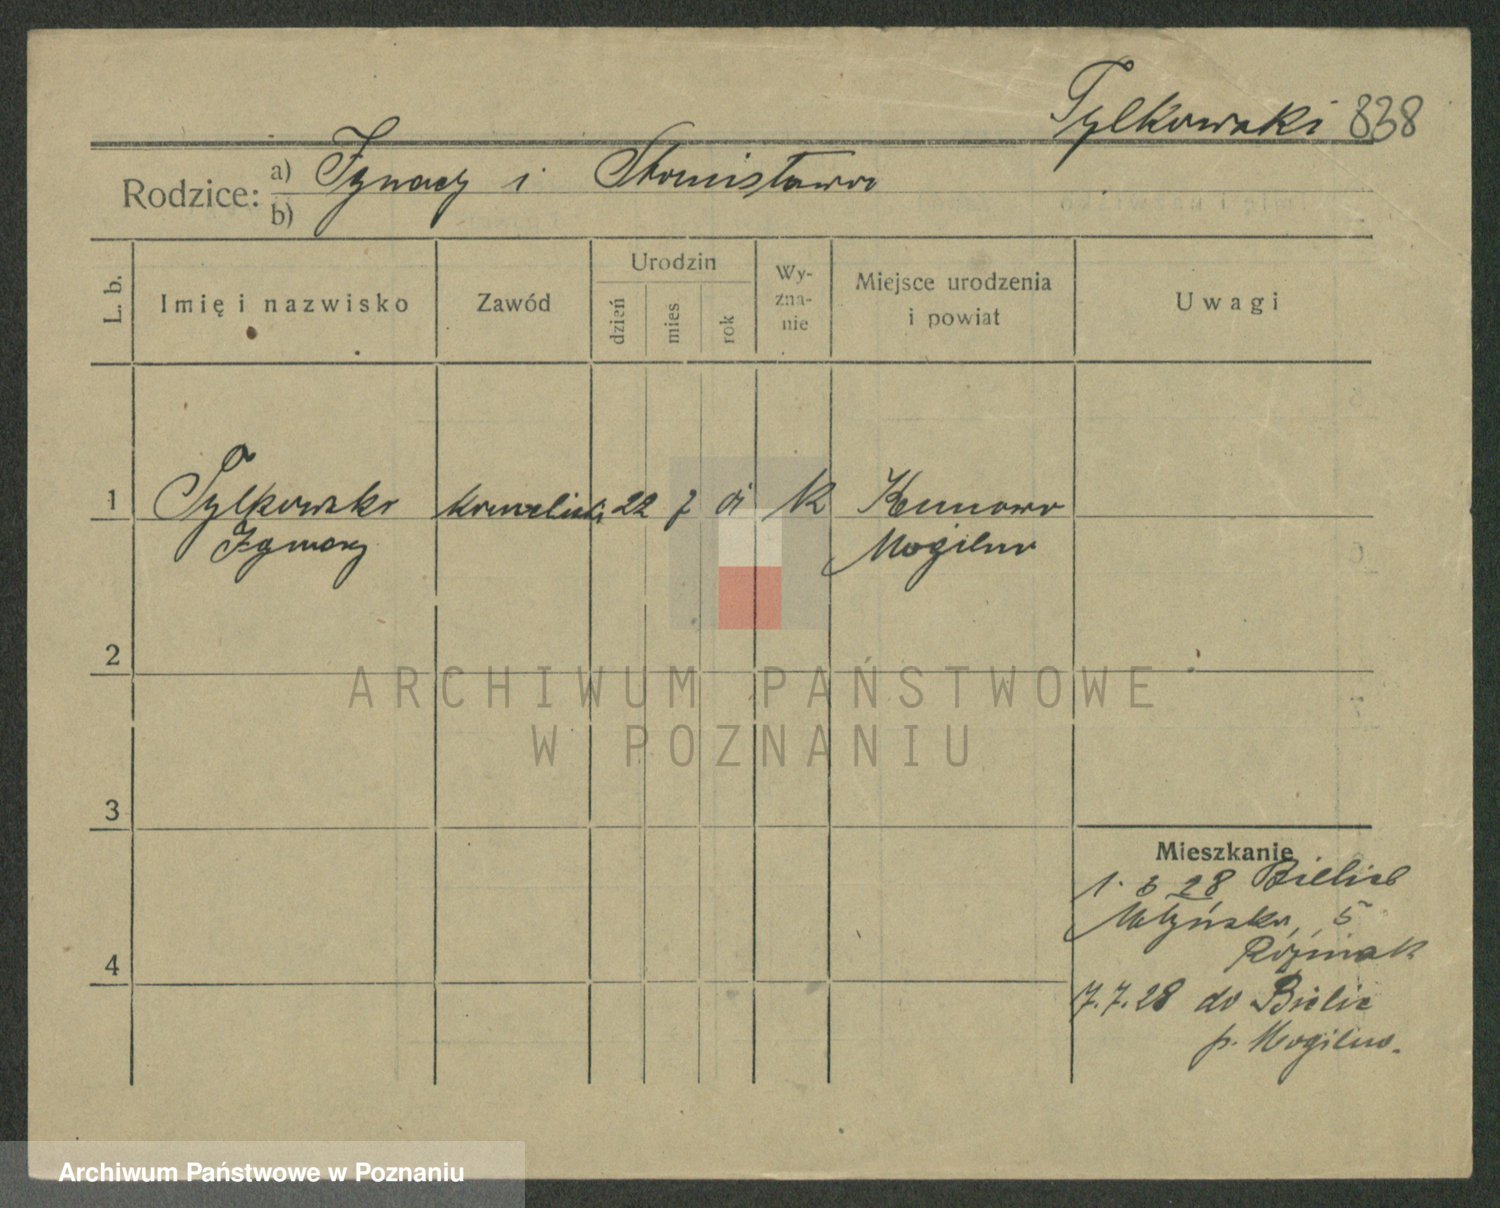 Tylkowski 838
Rodzice: a) Ignacy i Stanisława
b)
L. b. Imię i nazwisko Zawód Urodzin dzień mies rok Wy-zna-nie Miejsce urodzenia i powiat Uwagi
1 Tylkowski 22 7 K Kunowo
Ignacy Mogilno
2
ARCHIWUM PAŃSTWOWE
W POZNANIU
3
Mieszkanie
1. 28
Młyńska, 5
4
7.7.28 do Bielic
p. Mogilno.
Archiwum Państwowe w Poznaniu